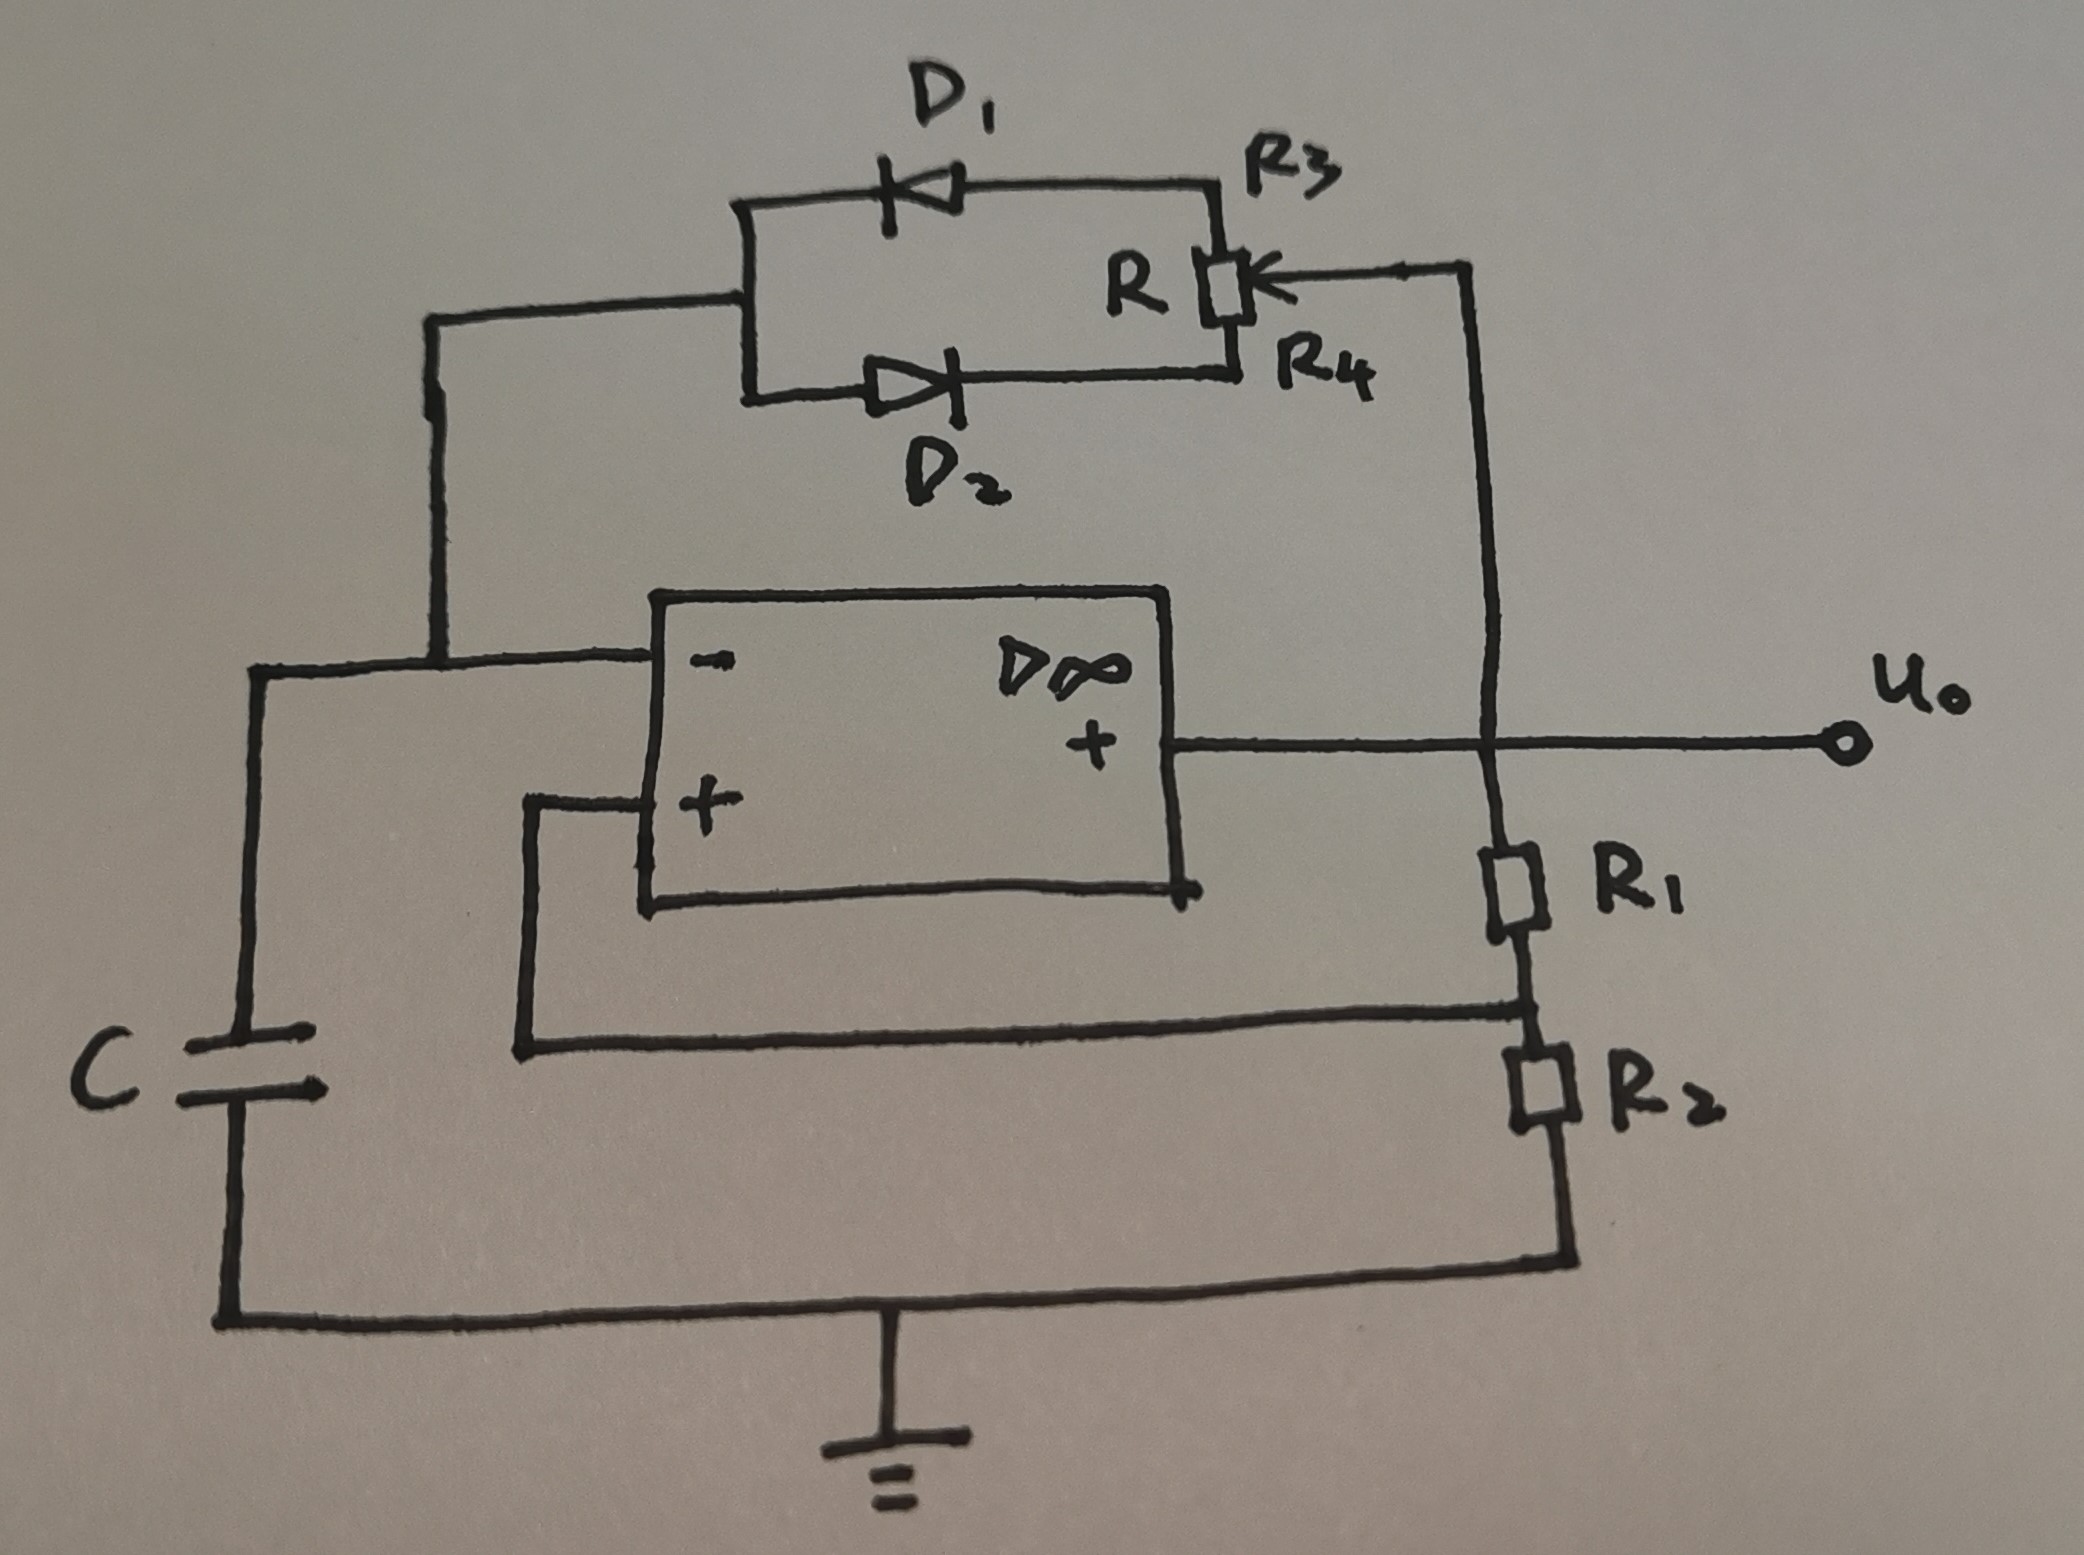 D₁
R3
R
R4
D₂
- ▷∞
+
+
u₀
R₁
C
R₂